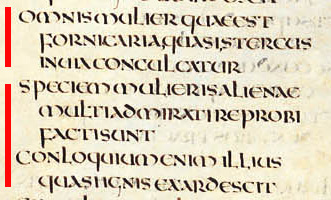 OMNIS MULIER QUAE EST
FORNICARIA QUASI STERCUS
IN UIA CONCULCATUR
SPECIEM MULIERIS ALIENAE
MULTI ADMIRATI REPROBI
FACTI SUNT
CONLOQUIUM ENIM ILLIUS
QUASI IGNIS EXARDESCIT